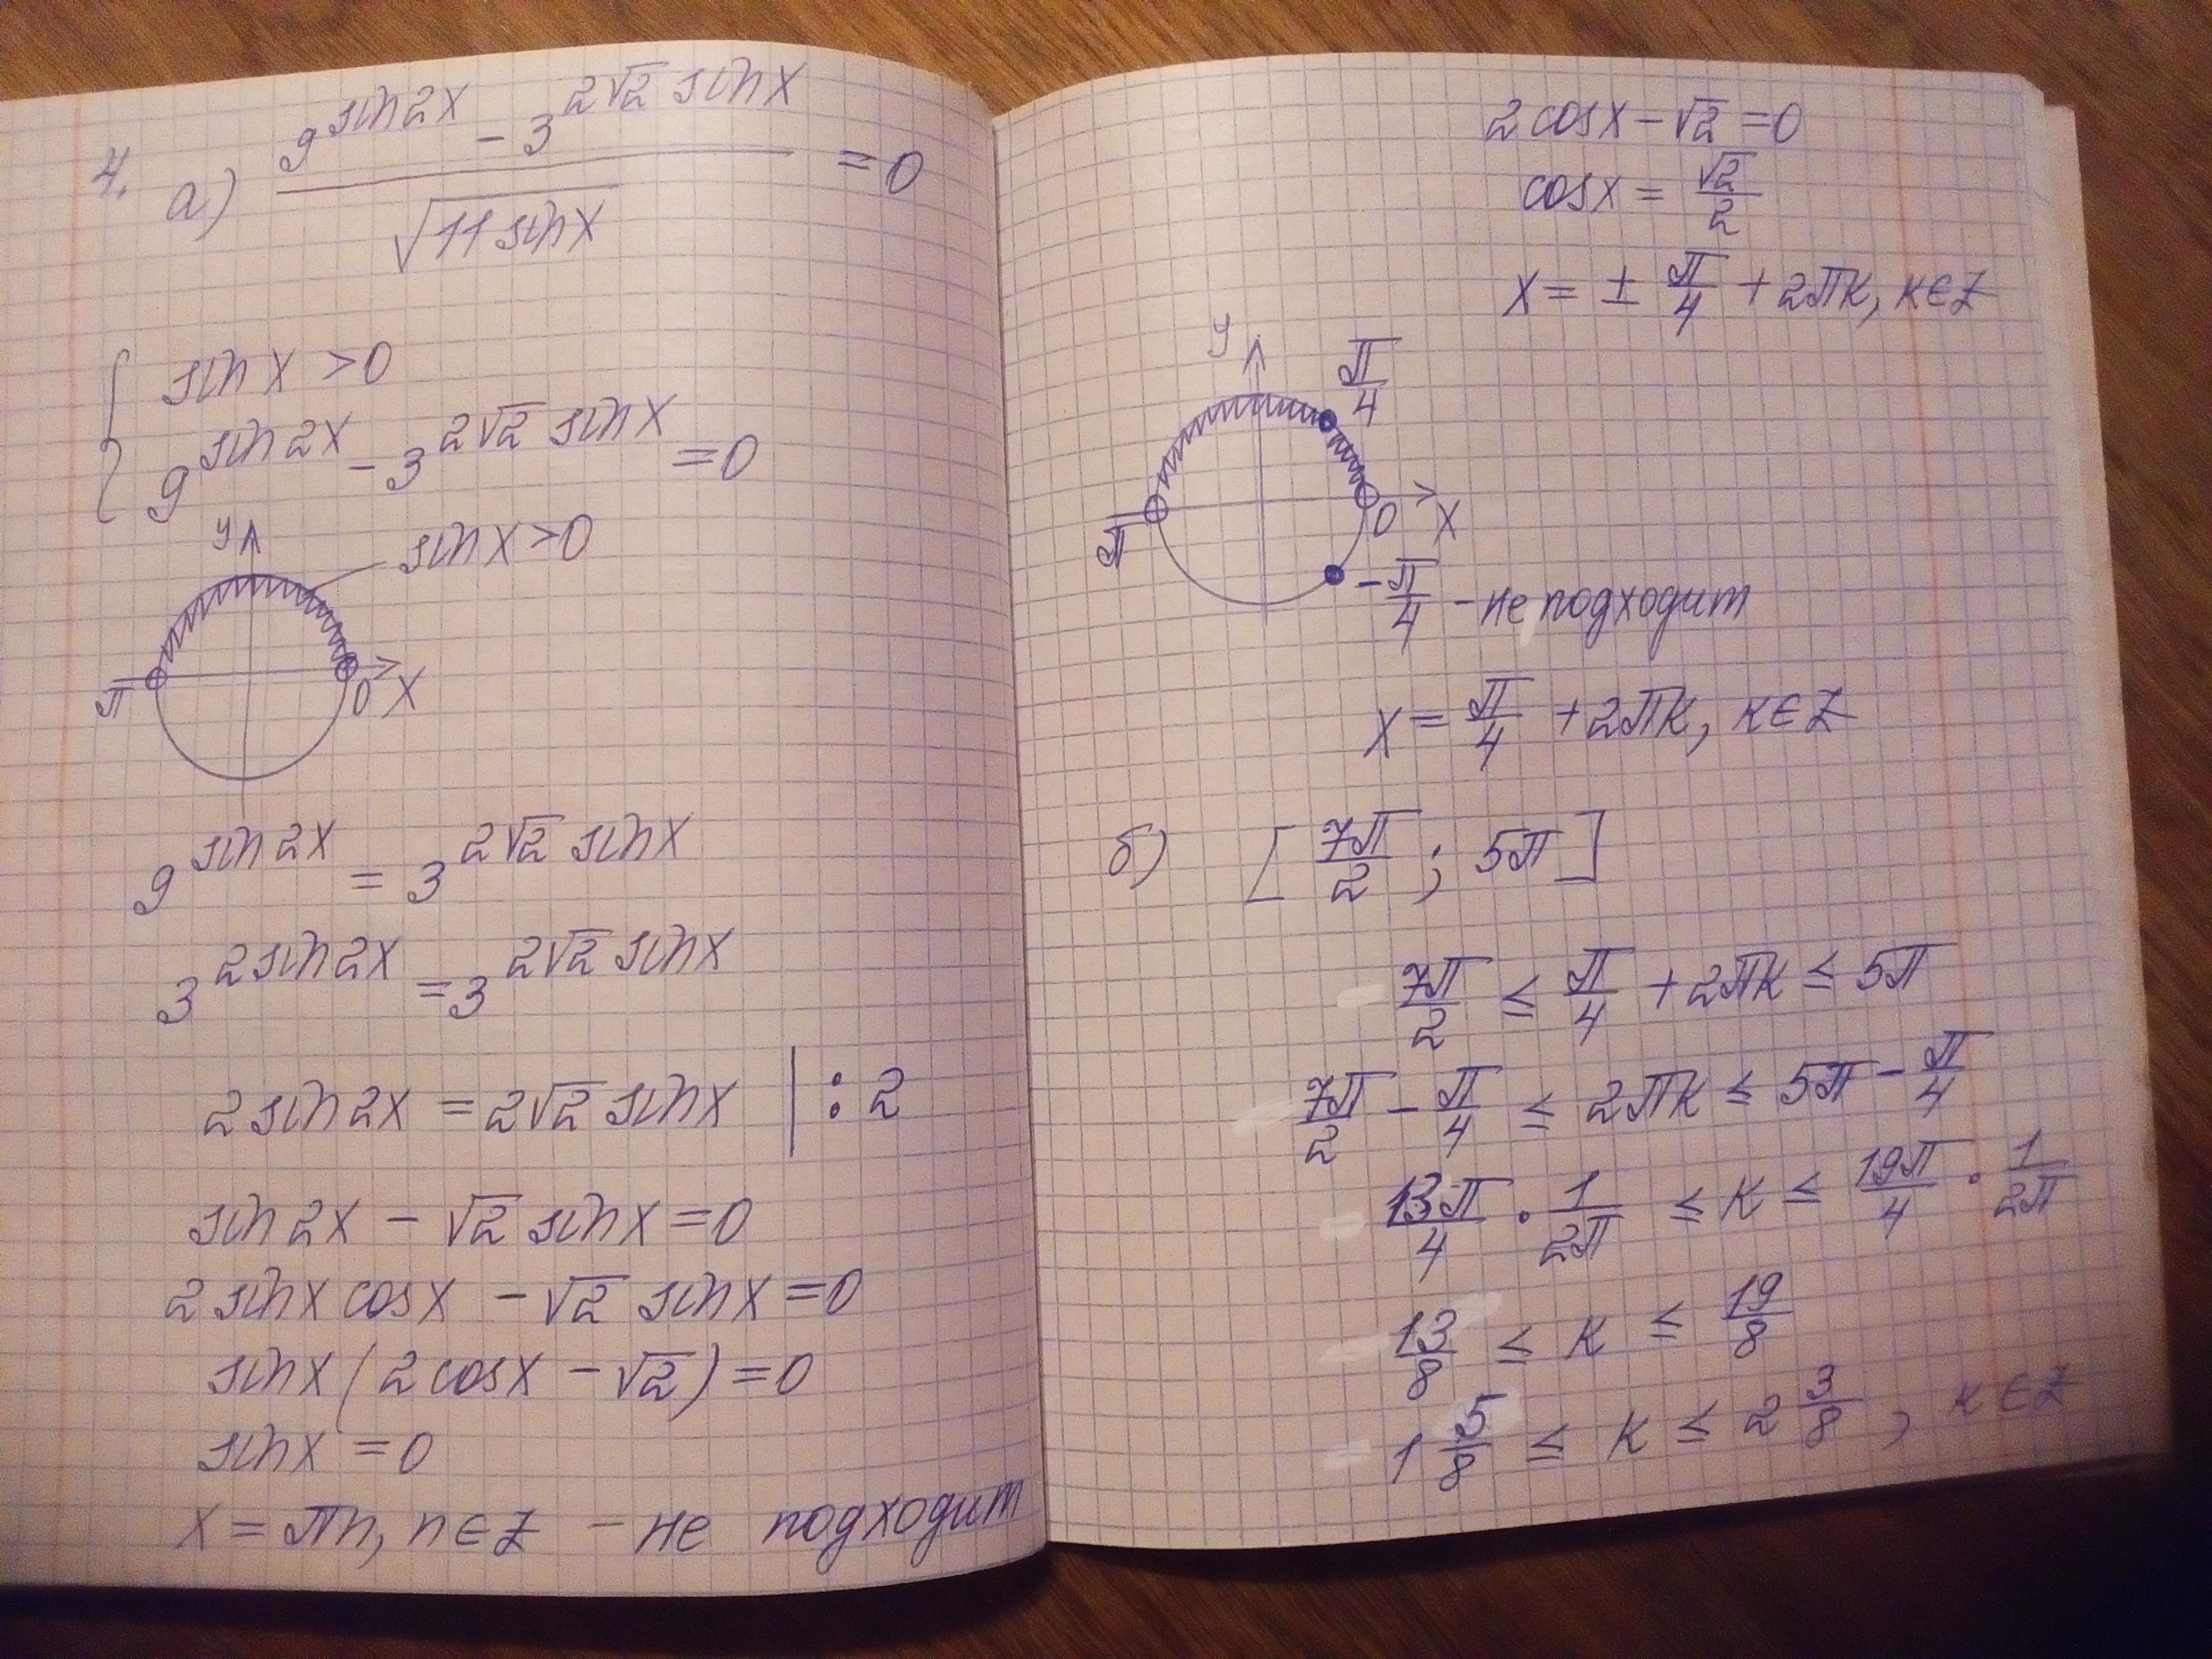 4. а) (9^(sin2x) − 3^(2√2 sinx)) / √(11sinx) = 0
{ sinx > 0
9^(sin2x) − 3^(2√2 sinx) = 0
y
sinx > 0
π 0 x
9^(sin2x) = 3^(2√2 sinx)
3^(2sin2x) = 3^(2√2 sinx)
2sin2x = 2√2 sinx | : 2
sin2x − √2 sinx = 0
2sinx cosx − √2 sinx = 0
sinx(2cosx − √2) = 0
sinx = 0
x = πn, n∈Z − не подходит
2cosx − √2 = 0
cosx = √2/2
x = ± π/4 + 2πк, к∈Z
y π/4
π 0 x
−π/4 − не подходит
x = π/4 + 2πк, к∈Z
б) [7π/2 ; 5π]
7π/2 ≤ π/4 + 2πк ≤ 5π
7π/2 − π/4 ≤ 2πк ≤ 5π − π/4
13π/4 · 1/2π ≤ к ≤ 19π/4 · 1/2π
13/8 ≤ к ≤ 19/8
1 5/8 ≤ к ≤ 2 3/8, к∈Z